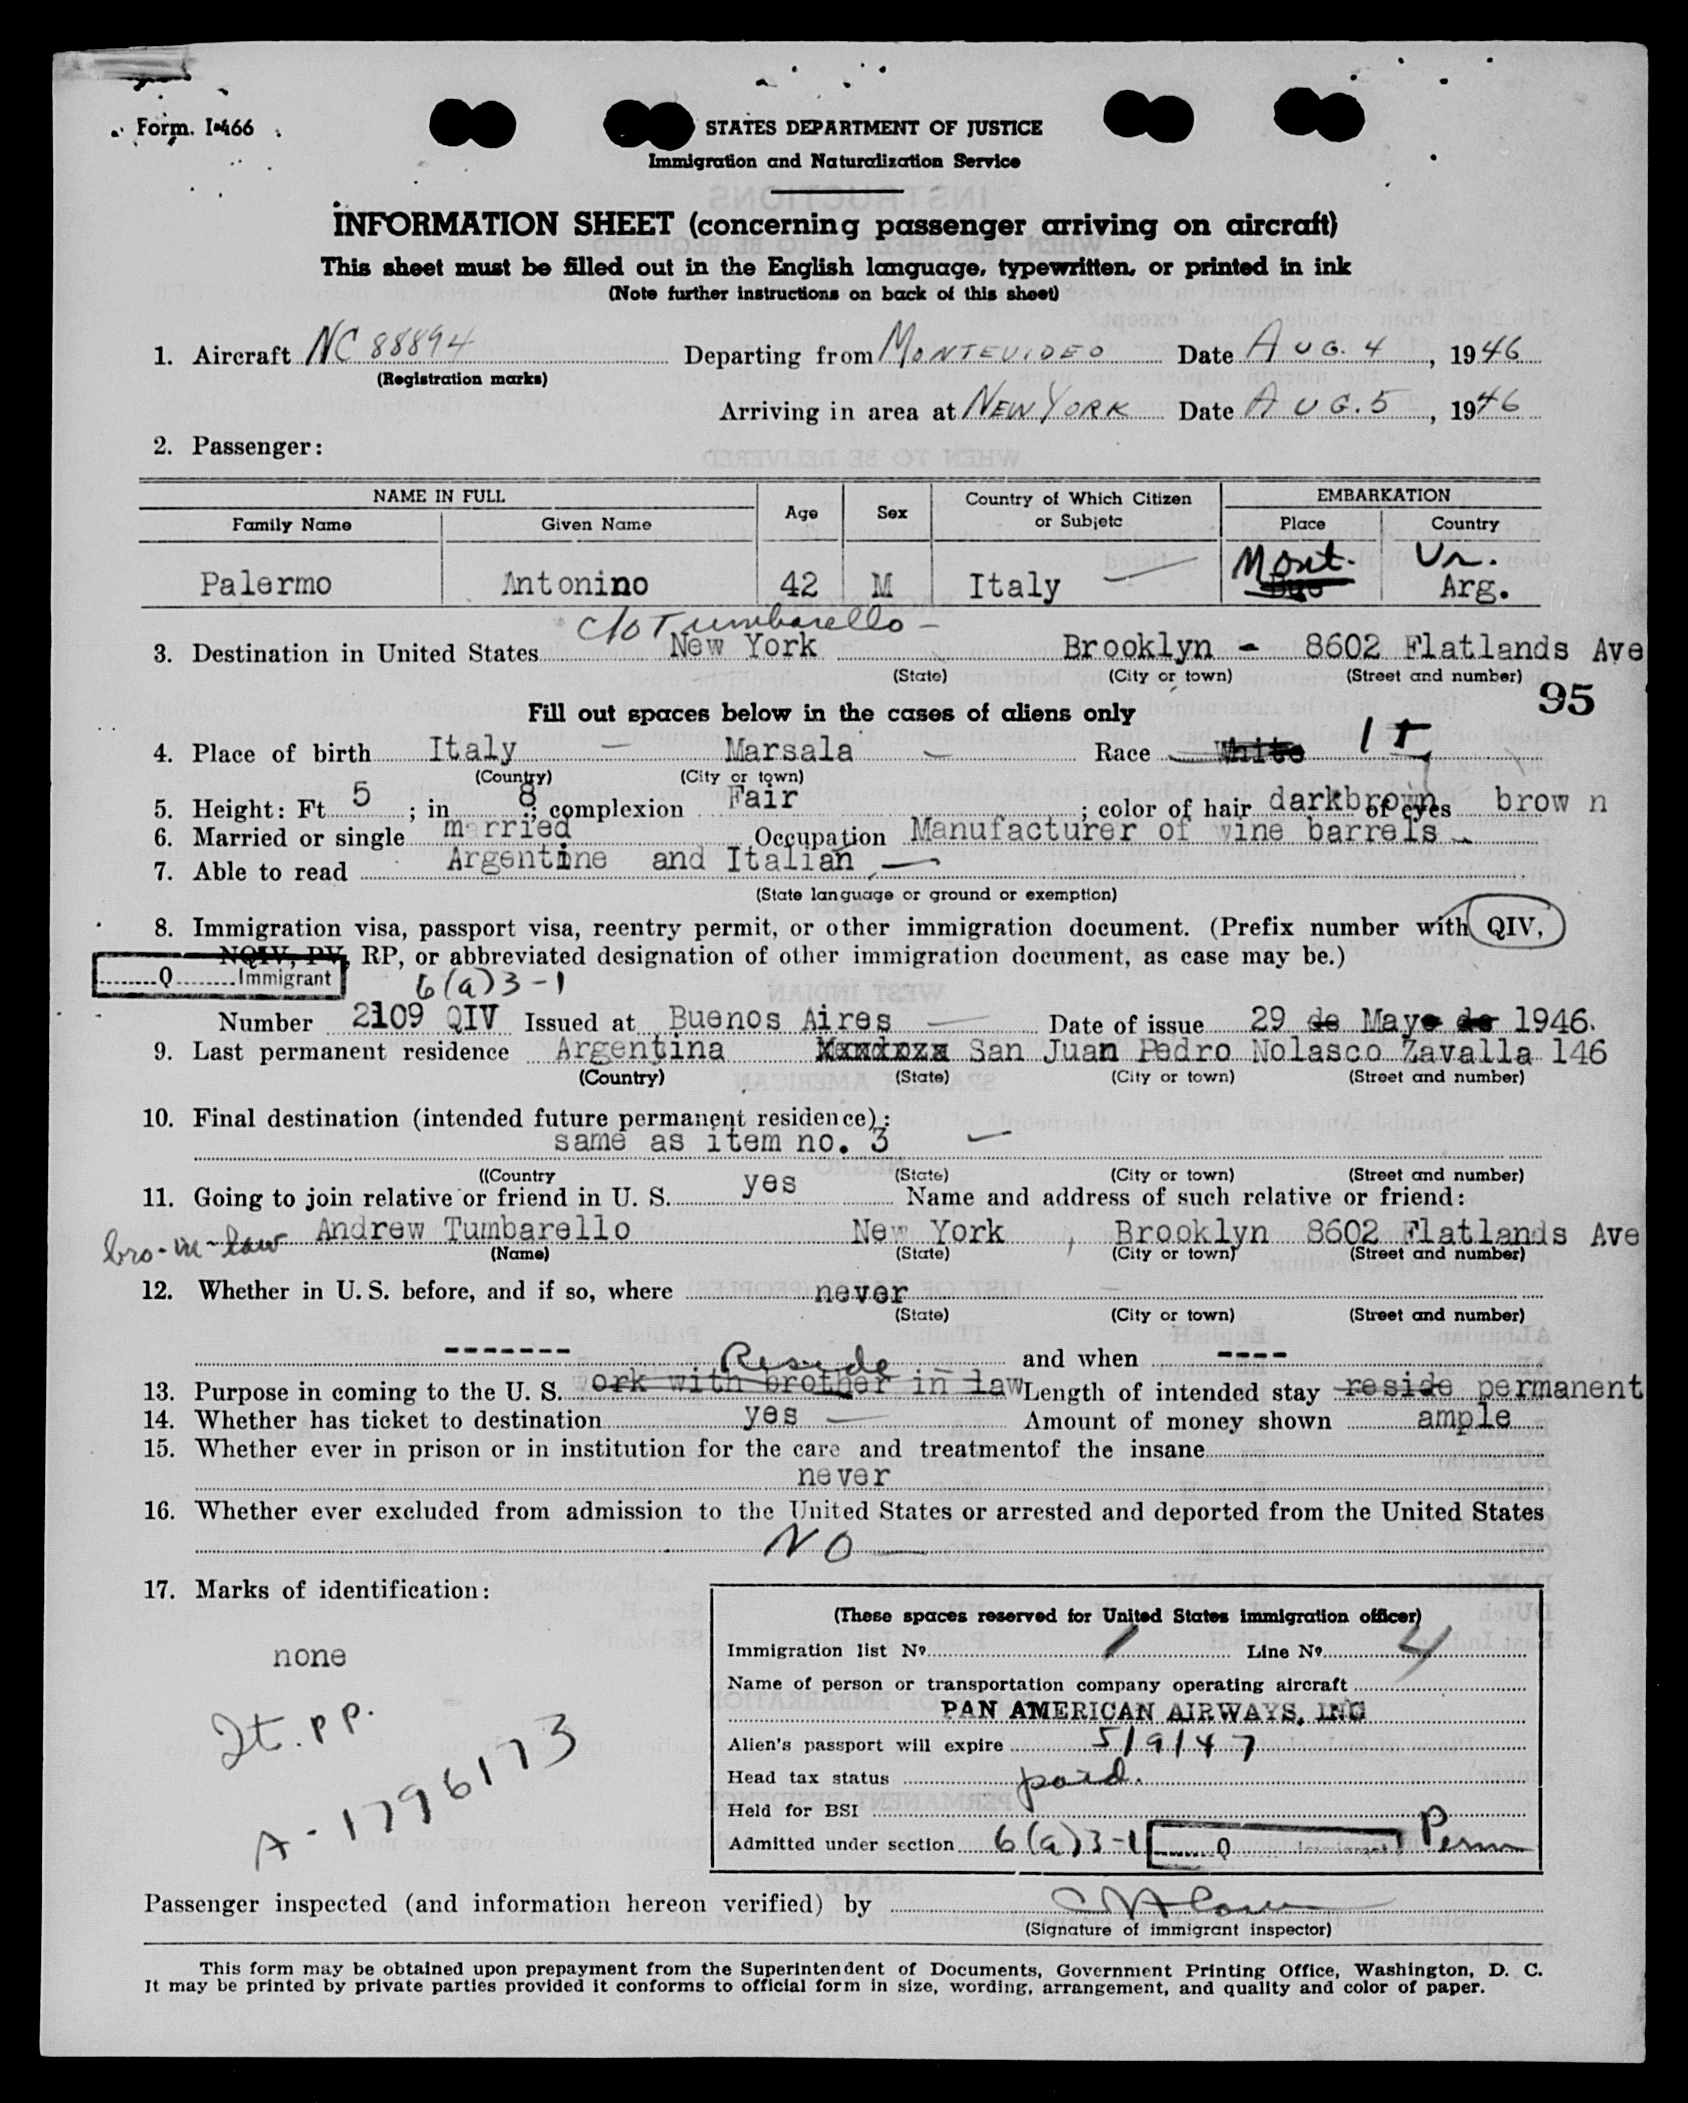 Form. I-466
STATES DEPARTMENT OF JUSTICE
Immigration and Naturalization Service
INFORMATION SHEET (concerning passenger arriving on aircraft)
This sheet must be filled out in the English language, typewritten, or printed in ink
(Note further instructions on back of this sheet)
1. Aircraft NC 88894 Departing from MONTEVIDEO Date AUG. 4, 1946
(Registration marks)
Arriving in area at NEW YORK Date AUG. 5, 1946
2. Passenger:
NAME IN FULL Age Sex Country of Which Citizen or Subjetc EMBARKATION
Family Name Given Name Place Country
Mont. Ur.
Palermo Antonino 42 M Italy Bue Arg.
c/o Tumbarello -
3. Destination in United States New York Brooklyn - 8602 Flatlands Ave
(State) (City or town) (Street and number)
95
Fill out spaces below in the cases of aliens only
4. Place of birth Italy - Marsala - Race White IT
(Country) (City or town)
5. Height: Ft 5 ; in 8 ; complexion Fair ; color of hair darkbrown of eyes brow n
6. Married or single married Occupation Manufacturer of wine barrels
7. Able to read Argentine and Italian
(State language or ground or exemption)
8. Immigration visa, passport visa, reentry permit, or other immigration document. (Prefix number with QIV,
NQIV, PV, RP, or abbreviated designation of other immigration document, as case may be.)
Q Immigrant 6(a)3-1
Number 2109 QIV Issued at Buenos Aires Date of issue 29 de Mayo de 1946.
9. Last permanent residence Argentina Mendoza San Juan Pedro Nolasco Zavalla 146
(Country) (State) (City or town) (Street and number)
10. Final destination (intended future permanent residence):
same as item no. 3
((Country (State) (City or town) (Street and number)
11. Going to join relative or friend in U. S. yes Name and address of such relative or friend:
bro-in-law Andrew Tumbarello New York , Brooklyn 8602 Flatlands Ave
(Name) (State) (City or town) (Street and number)
12. Whether in U. S. before, and if so, where never
(State) (City or town) (Street and number)
------- and when ----
Reside
13. Purpose in coming to the U. S. work with brother in law Length of intended stay reside permanent
14. Whether has ticket to destination yes Amount of money shown ample
15. Whether ever in prison or in institution for the care and treatmentof the insane
never
16. Whether ever excluded from admission to the United States or arrested and deported from the United States
NO
17. Marks of identification:
none
It. pp.
A-1796173
(These spaces reserved for United States immigration officer)
Immigration list No. 1 Line No. 4
Name of person or transportation company operating aircraft
PAN AMERICAN AIRWAYS, INC
Alien's passport will expire 5/9/47
Head tax status paid.
Held for BSI
Admitted under section 6(a)3-1 Q Immigrant Perm
Passenger inspected (and information hereon verified) by
(Signature of immigrant inspector)
This form may be obtained upon prepayment from the Superintendent of Documents, Government Printing Office, Washington, D. C.
It may be printed by private parties provided it conforms to official form in size, wording, arrangement, and quality and color of paper.